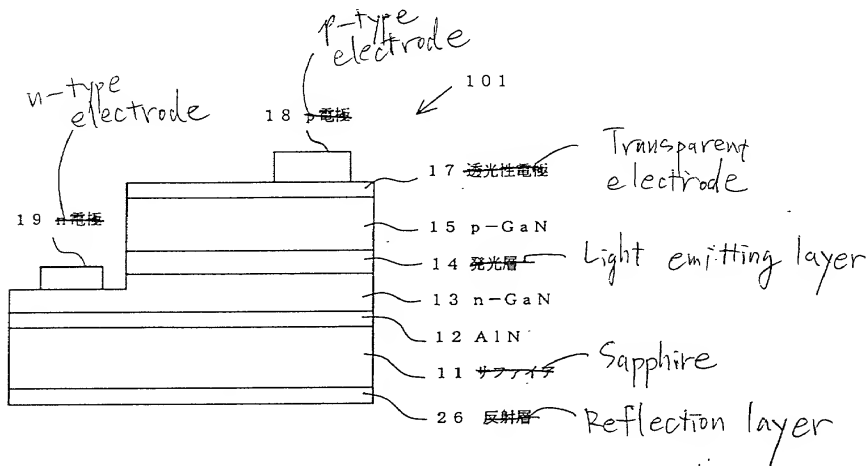 p-type
electrode
n-type
electrode
101
18 p電極
17 透光性電極
Transparent
electrode
19 n電極
15 p-GaN
14 発光層
Light emitting layer
13 n-GaN
12 AlN
11 サファイア
Sapphire
26 反射層
Reflection layer